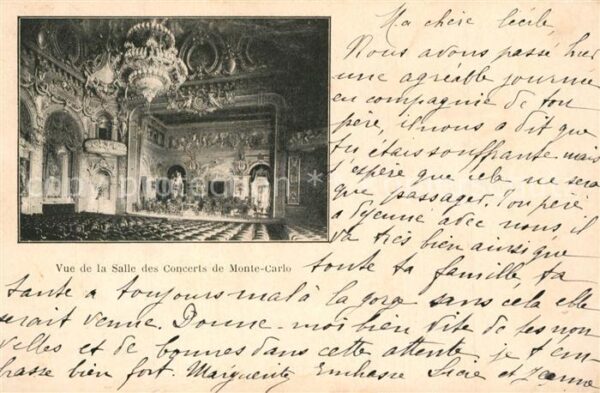 Ma chère Cécile
Nous avons passé hier
une agréable journée
en compagnie de ton
père, il nous a dit que
tu étais souffrante mais
j'espère que cela ne sera
que passager. Ton père
a déjeuné avec nous il
va très bien ainsi que
toute ta famille, ta
tante a toujours mal à la gorge sans cela elle
serait venue. Donne moi bien vite de tes nou
velles et de bonnes dans cette attente je t'em
brasse bien fort. Marguerite Embrasse et Jeanne
Vue de la Salle des Concerts de Monte-Carlo